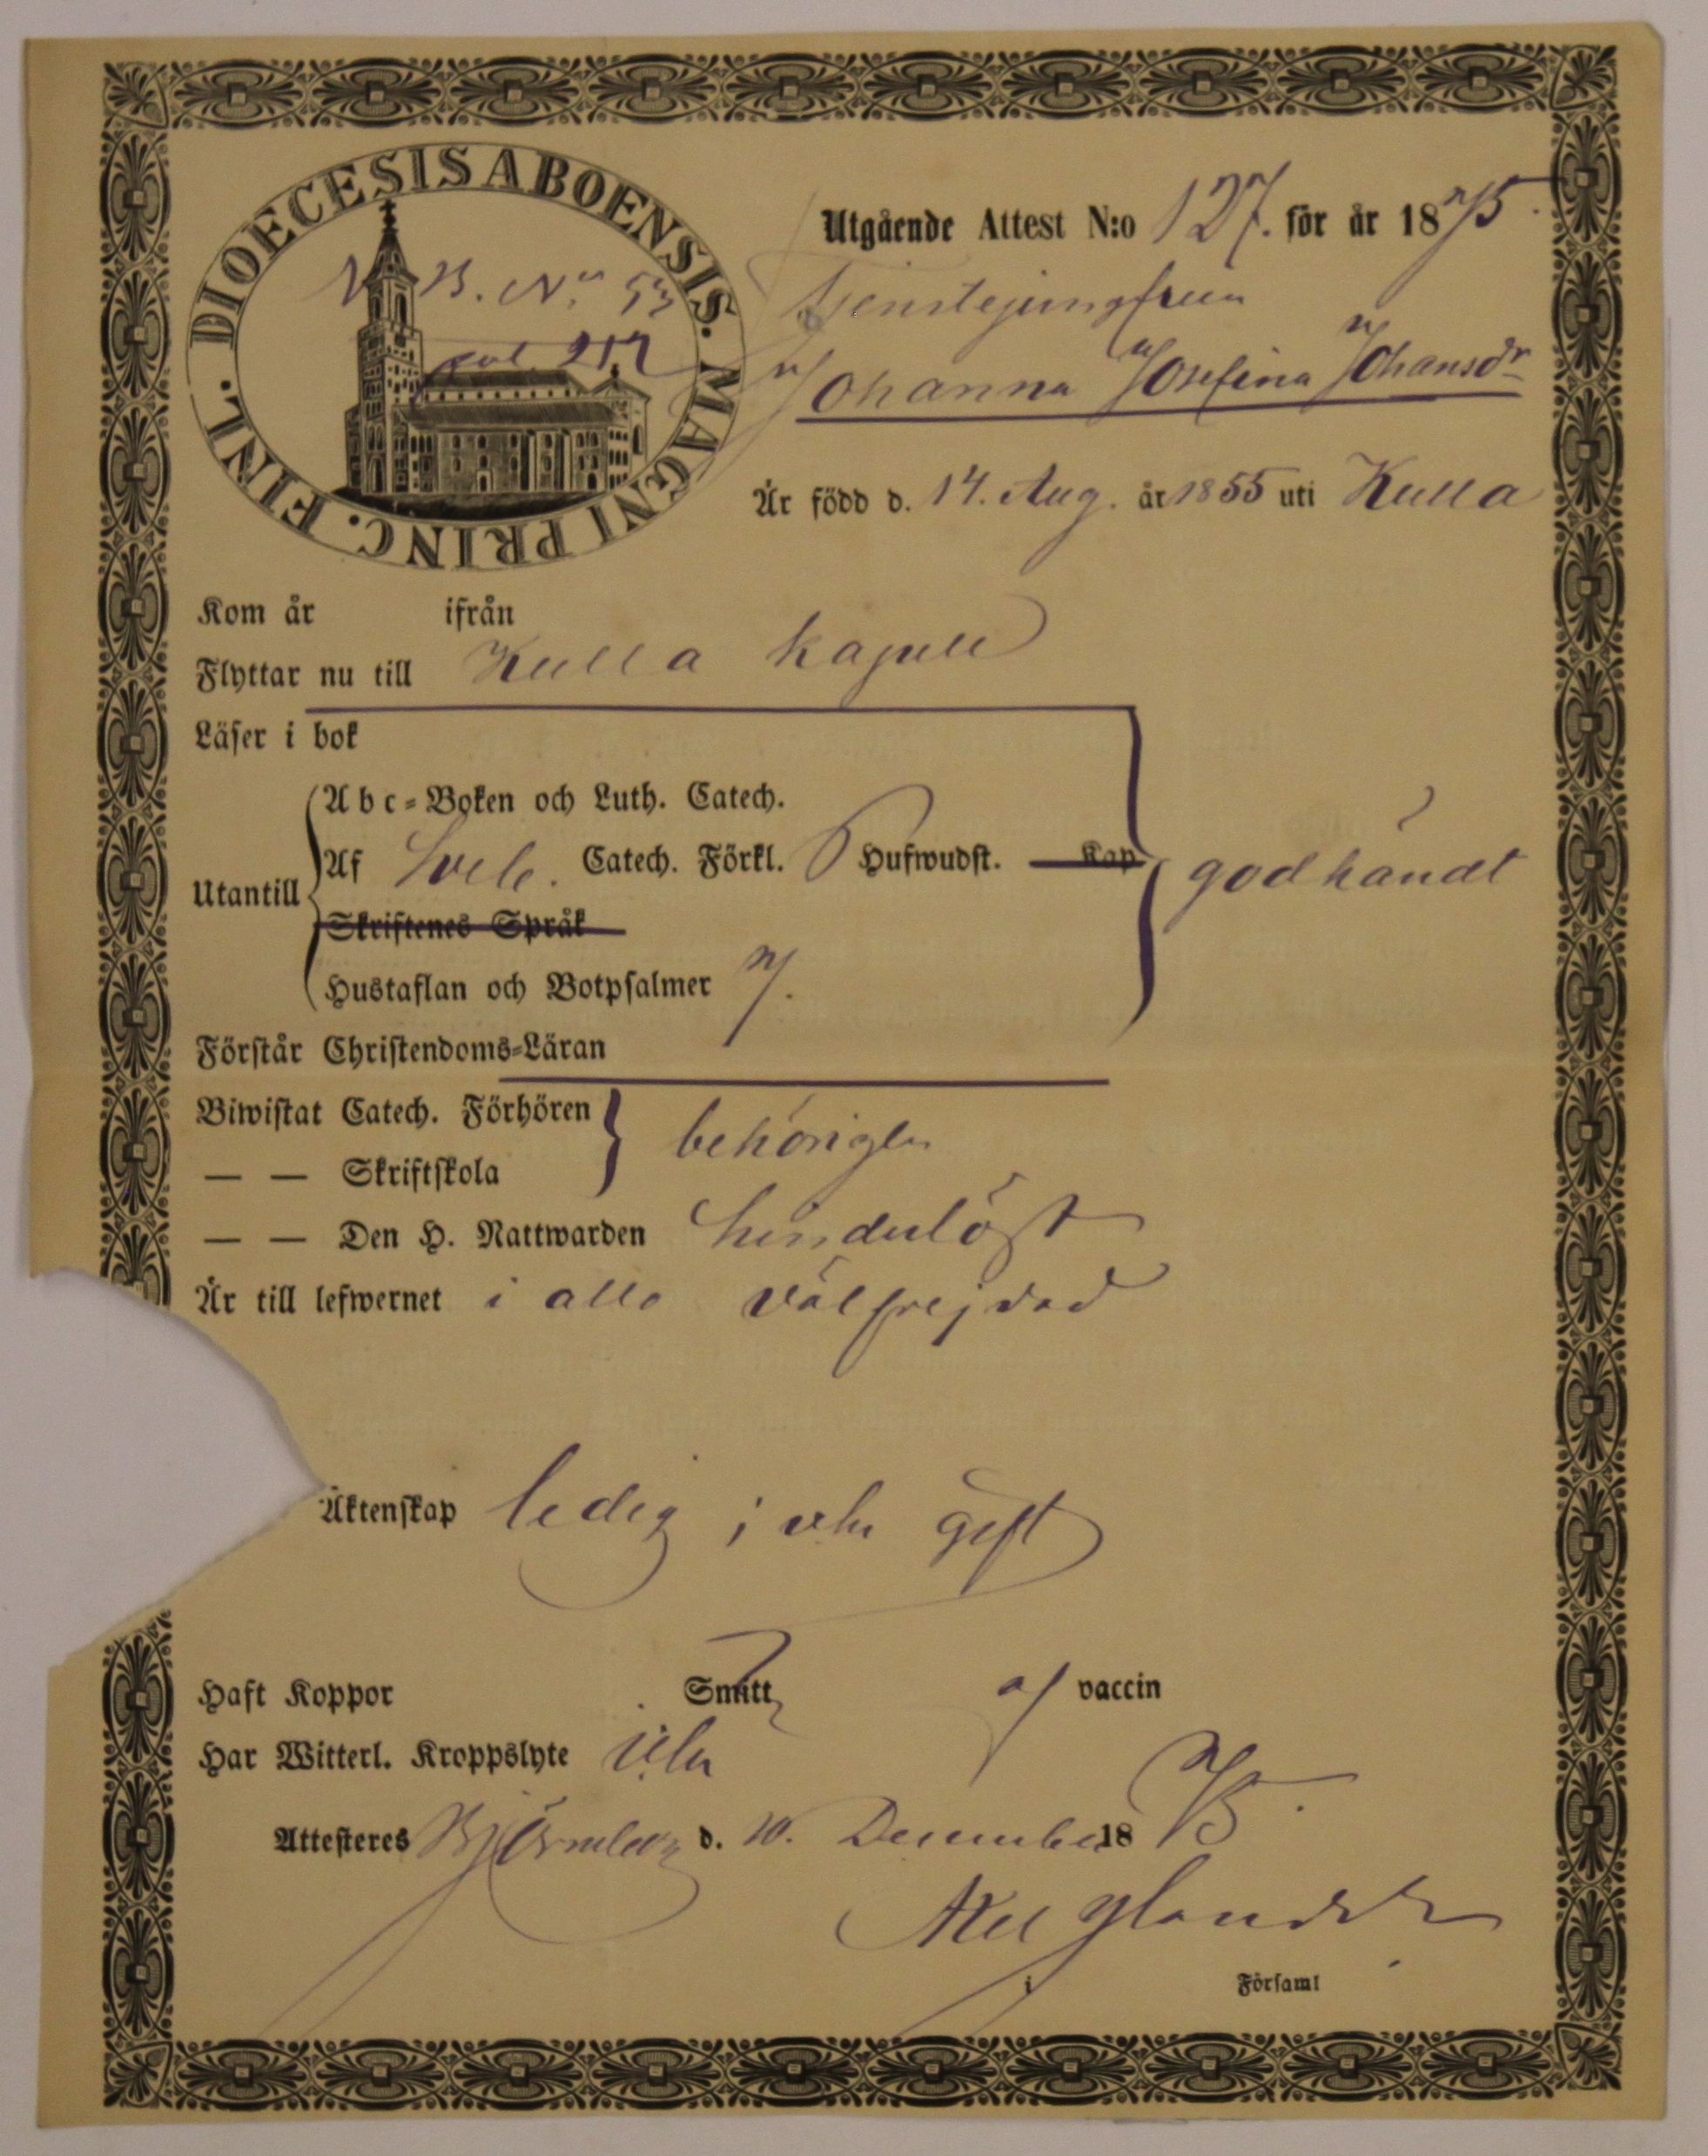 DIOECESIS ABOENSIS. MAGNI PRINC. FINL.
N. B. No 53
pol. 217
Utgående Attest N:o 127. för år 1875.
Tjenstejungfrun
Johanna Josefina Johansdr
Är född d. 14. Aug. år 1855 uti Kulla
Kom år ifrån
Flyttar nu till Kulla kapell
Läser i bok
Abc-Boken och Luth. Catech.
Utantill Af Sveb. Catech. Förkl. 6 Hufwudst. Kap godkändt
Skriftenes Språk
Hustaflan och Botpsalmer 7.
Förstår Christendoms-Läran
Biwistat Catech. Förhören behörigen
— — Skriftskola
— — Den H. Nattwarden hinderlöst
Är till lefwernet i allo välfrejdad
Äktenskap ledig; icke gift
Haft Koppor Smitt af vaccin
Har Witterl. Kroppslyte icke
Attesteres Björneborg d. 10. December 1875.
Axel Ylander
i Församl